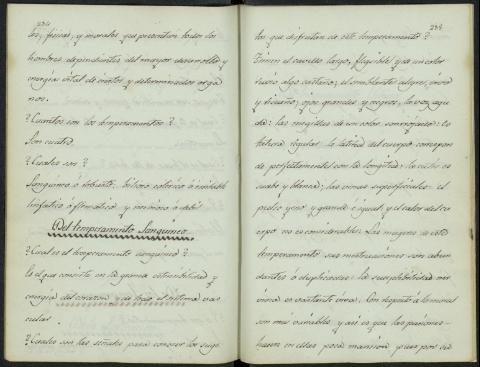 234
les, físicas, y morales que presentan todos los
hombres dependientes del mayor desarrollo y
energia vital de ciertos y determinados orga
nos.
? Cuantos son los temperamentos ?
Son cuatro.
? Cuales son ?
Sanguineo ó bilioso colerico ó
linfatico ó flematico y nervioso ó
Del temperamento Sanguineo
? Cual es el temperamento sanguineo ?
Es el que consiste en la suma estensibilidad y
energia del corazon y de todo el sistema vas
cular
? Cuales son las señales para conocer los suge
235
tos que disfrutan de este temperamento ?
Tienen el cavello largo, flegible y de un color
rubio algo castaño; el semblante alegre,
y risueño, ojos grandes y negros, la voz agu
da: las megillas de un color sonrosado: es
tatura regular: la latitud del cuerpo corresponde
perfectamente con la longitud: la cutis es
suabe y blanca; las venas superficiales: el
pulso y grande ó igual y el calor del cu
erpo no es considerable. Las mugeres de este
temperamento sus mestruaciones son abun
dantes ó duplicadas: la susceptibilidad ner
viosa es bastante viva. Con respecto á lo moral
son muy variables, y asi es que las pasiones
hacen en ellos poca mansion pues por